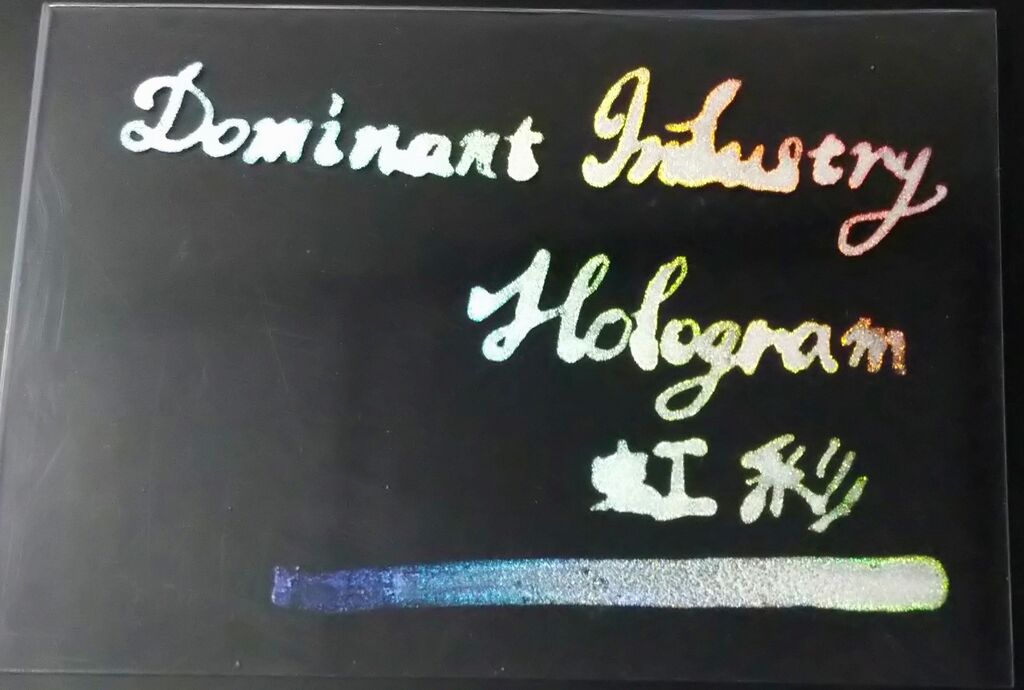 Dominant Industry
Hologram
虹彩